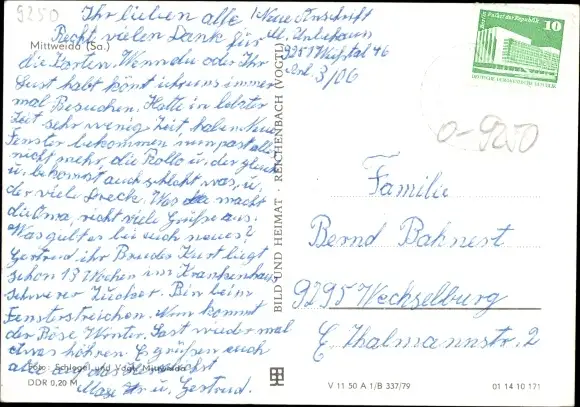 9250
Mittweida (Sa.)
Ihr lieben alle
Recht vielen Dank für
die Karten. Wenn du oder Ihr
Lust habt könt ihr uns immer
mal Besuchen. Hatte in letzter
Zeit sehr wenig Zeit, haben Neue
Fenster bekommen nun past alles
nicht mehr, die Rollo u. der gleich
u. bekomst auch schlecht was, u.
der viele Dreck. Was macht
die Oma, richt viele Grüße aus.
Was gibt es bei euch neues?
Gertrud ihr Bruder Kurt liegt
schon 13 Wochen im Krankenhaus
schwerer Zucker. Bin beim
Fensterstreichen. Nun kommt
der Böse Winter. Last wieder mal
etwas höhren. Es grüßen euch
alle auf das
u. Gertrud.
1 Neue Anschrift
M.
9251
3/06
Foto: Schlegel und Vogt, Mittweida
DDR 0,20 M
BILD UND HEIMAT · REICHENBACH (VOGTL)
Berlin, Palast der Republik
10
DEUTSCHE DEMOKRATISCHE REPUBLIK
0-9250
Familie
Bernd Bahnert
9295 Wechselburg
E. Thalmannstr. 2
V 11 50 A 1/B 337/79
01 14 10 171